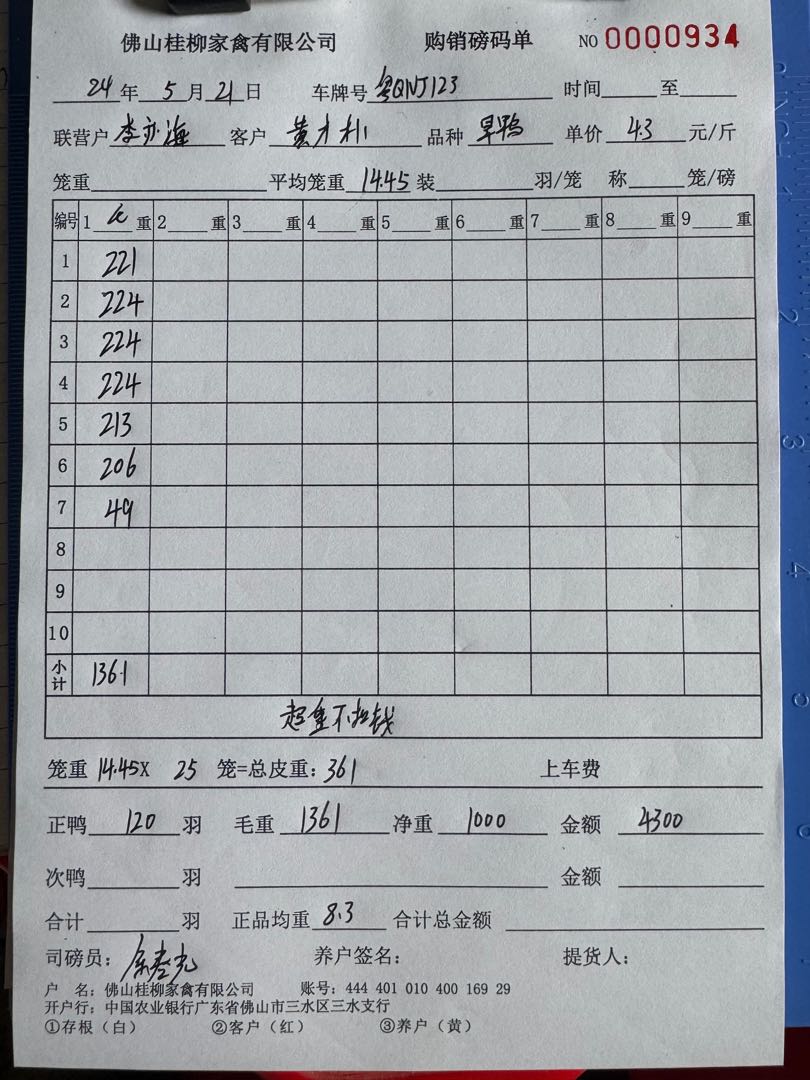 佛山桂柳家禽有限公司 购销磅码单 NO 0000934
24年 5月21日 车牌号 粤QNJ123 时间 至
联营户 李亦海 客户 黄才 品种 旱鸭 单价 4.3 元/斤
笼重 平均笼重 14.45 装 羽/笼 称 笼/磅
编号 1 毛 重 2 重 3 重 4 重 5 重 6 重 7 重 8 重 9 重
1 221
2 224
3 224
4 224
5 213
6 206
7 49
8
9
10
小计 1361
超重不扣钱
笼重 14.45X 25 笼=总皮重: 361 上车费
正鸭 120 羽 毛重 1361 净重 1000 金额 4300
次鸭 羽 金额
合计 羽 正品均重 8.3 合计总金额
司磅员: 养户签名: 提货人:
户 名: 佛山桂柳家禽有限公司 账号: 444 401 010 400 169 29
开户行: 中国农业银行广东省佛山市三水区三水支行
①存根（白） ②客户（红） ③养户（黄）